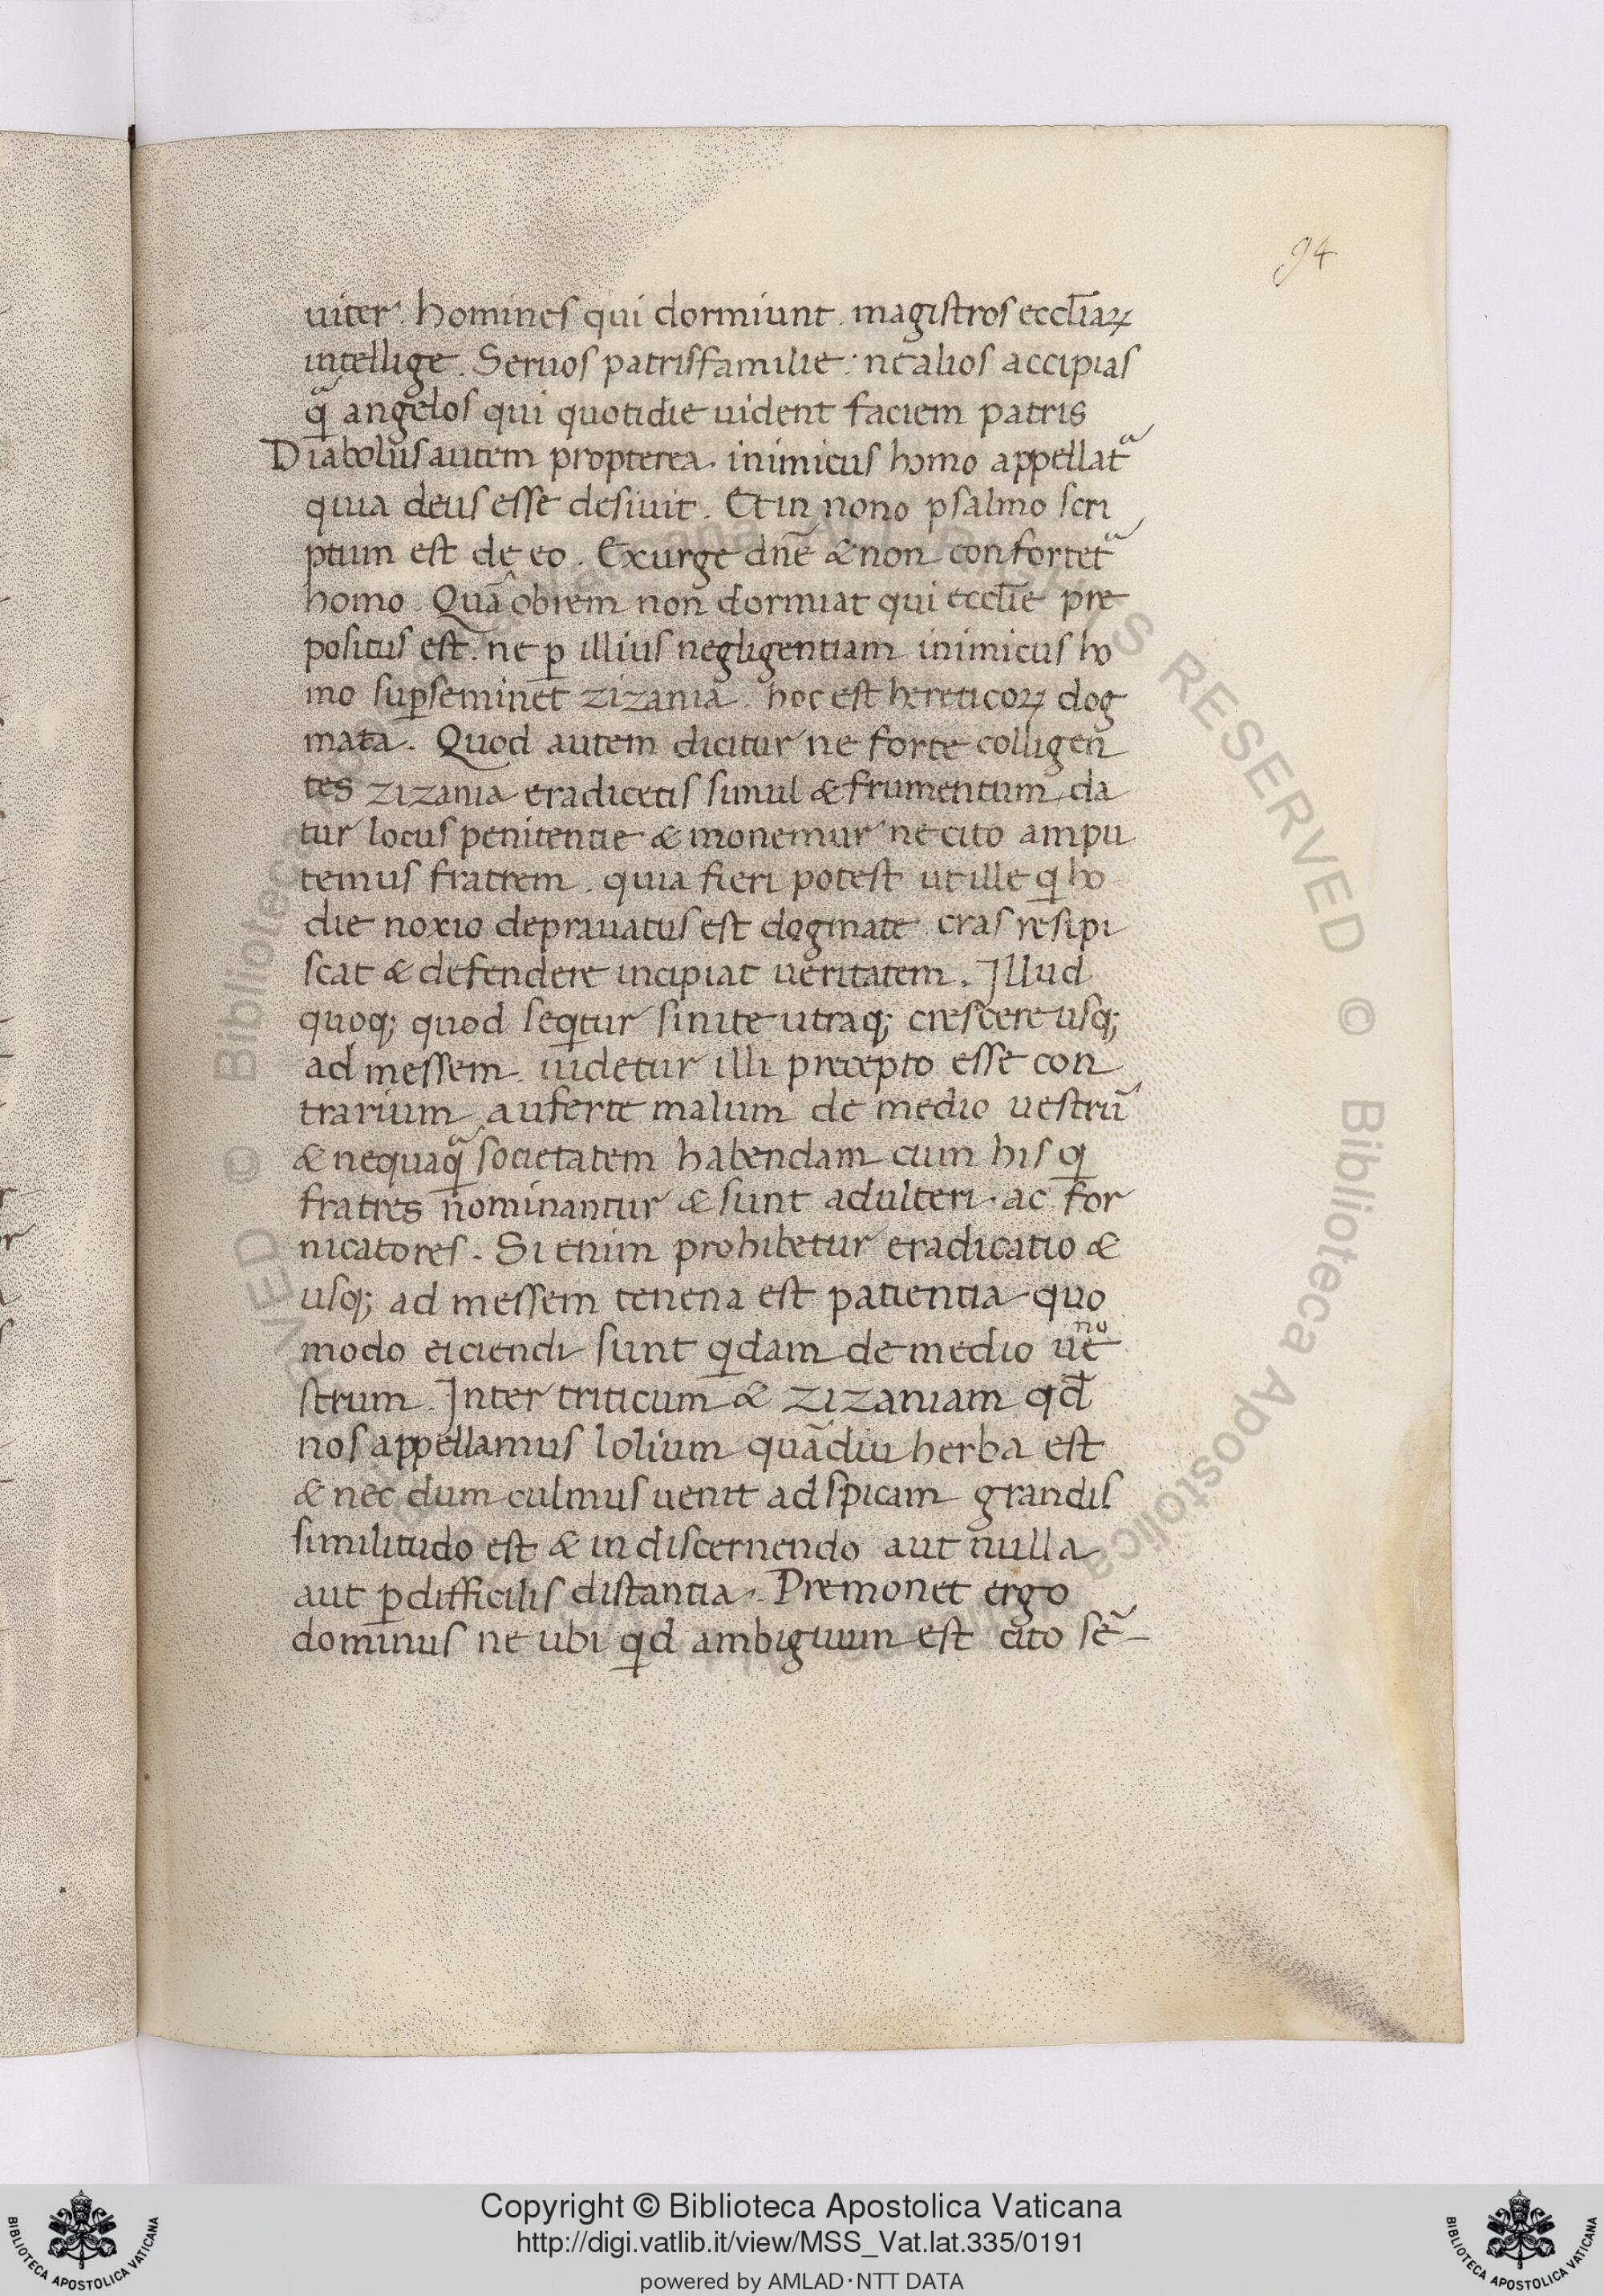 94
uiter. homines qui dormiunt. magistros eccl̄iaꝝ
intellige. Seruos patrisfamilie: ne alios accipias
qͣ̄ angelos qui quotidie uident faciem patris
Diabolus autem propterea. inimicus homo appellatͣ
quia deus esse desiuit. Et in nono psalmo scri
ptum est de eo. Exurge dn̄e & non confortetͣ
homo. Quā obrem non dormiat qui eccl̄ie pre
positus est. ne ꝑ illius negligentiam inimicus ho
mo suꝑseminet zizania. hoc est hereticoꝝ dog
mata. Quod autem dicitur ne forte colligen
tes zizania eradicetis simul & frumentum da
tur locus penitentie & monemur ne cito ampu
temus fratrem. quia fieri potest ut ille q ho
die noxio deprauatus est dogmate. cras resipi
scat & defendere incipiat ueritatem. Illud
quoq; quod seqtur sinite utraq; crescere usq;
ad messem. uidetur illi precepto esse con
trarium auferte malum de medio uestrū
& nequaqͣ̄ societatem habendam cum his q
fratres nominantur & sunt adulteri. ac for
nicatores. Si enim prohibetur eradicatio &
usq; ad messem tenena est patientia quo
modo eiciendi sunt qdam de medio ue
no
strum. Inter triticum & zizaniam qđ
nos appellamus lolium quādiu herba est
& nec dum culmus uenit ad spicam grandis
similitudo est & in discernendo aut nulla
aut ꝑdifficilis distantia. Premonet ergo
dominus ne ubi qd ambiguum est cito sē
RESERVED © Biblioteca Apostolica
Copyright © Biblioteca Apostolica Vaticana
http://digi.vatlib.it/view/MSS_Vat.lat.335/0191
powered by AMLAD·NTT DATA
BIBLIOTECA APOSTOLICA VATICANA
BIBLIOTECA APOSTOLICA VATICANA